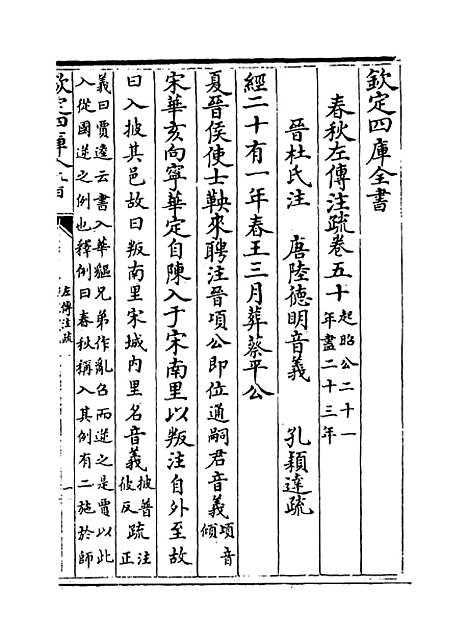 欽定四庫全書
春秋左傳注疏卷五十 起昭公二十一
年盡二十三年
晉杜氏注 唐陸德明音義 孔穎達疏
經二十有一年春王三月葬蔡平公
夏晉侯使士鞅來聘注晉頃公即位通嗣君音義 頃音
傾
宋華亥向寧華定自陳入于宋南里以叛注自外至故
曰入披其邑故曰叛南里宋城内里名音義 披普
彼反 疏 注
正
義曰賈逵云書入華貙兄弟作亂召而逆之是賈以此
入從國逆之例也釋例曰春秋稱入其例有二施於師
欽定四庫全書
左傳注疏
一